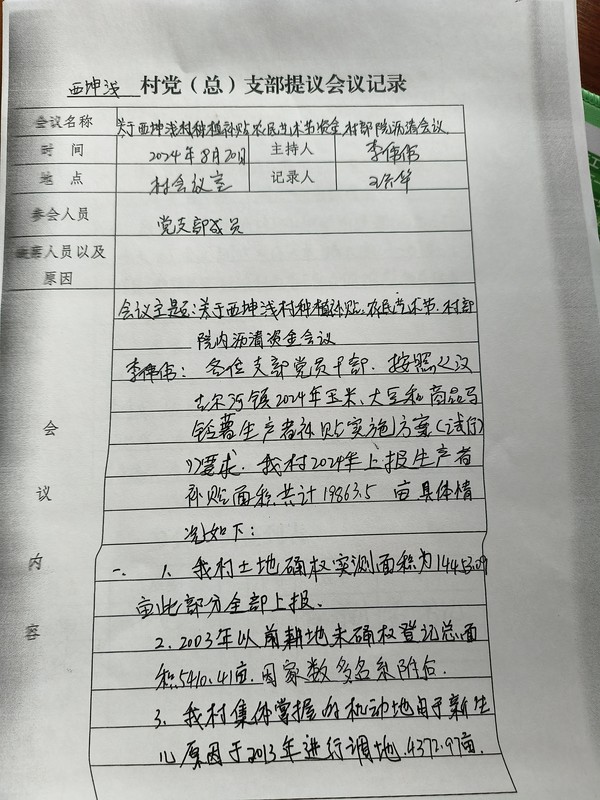 西坤浅 村党（总）支部提议会议记录
会议名称 关于西坤浅村种植补贴农民艺术节资金村部院沥清会议
时 间 2024年8月20日 主持人 李伟伟
地 点 村会议室 记录人
参会人员 党支部成员
人员以及
原因
会议主题：关于西坤浅村种植补贴.农民艺术节.村部
院内沥清资金会议
李伟伟：各位支部党员干部.按照《汉
古尔河镇2024年玉米、大豆和商品马
铃薯生产者补贴实施方案（试行）
》要求.我村2024年上报生产者
补贴面积共计19863.5 亩具体情
况如下：
会议内容
一、1、我村土地确权实测面积为14453.09
亩此部分全部上报.
2.2003年以前耕地未确权登记总面
积5410.41亩.因家数多名系附后.
3、我村集体掌握的机动地由于新生
儿原因于2013年进行调地.4372.97亩.